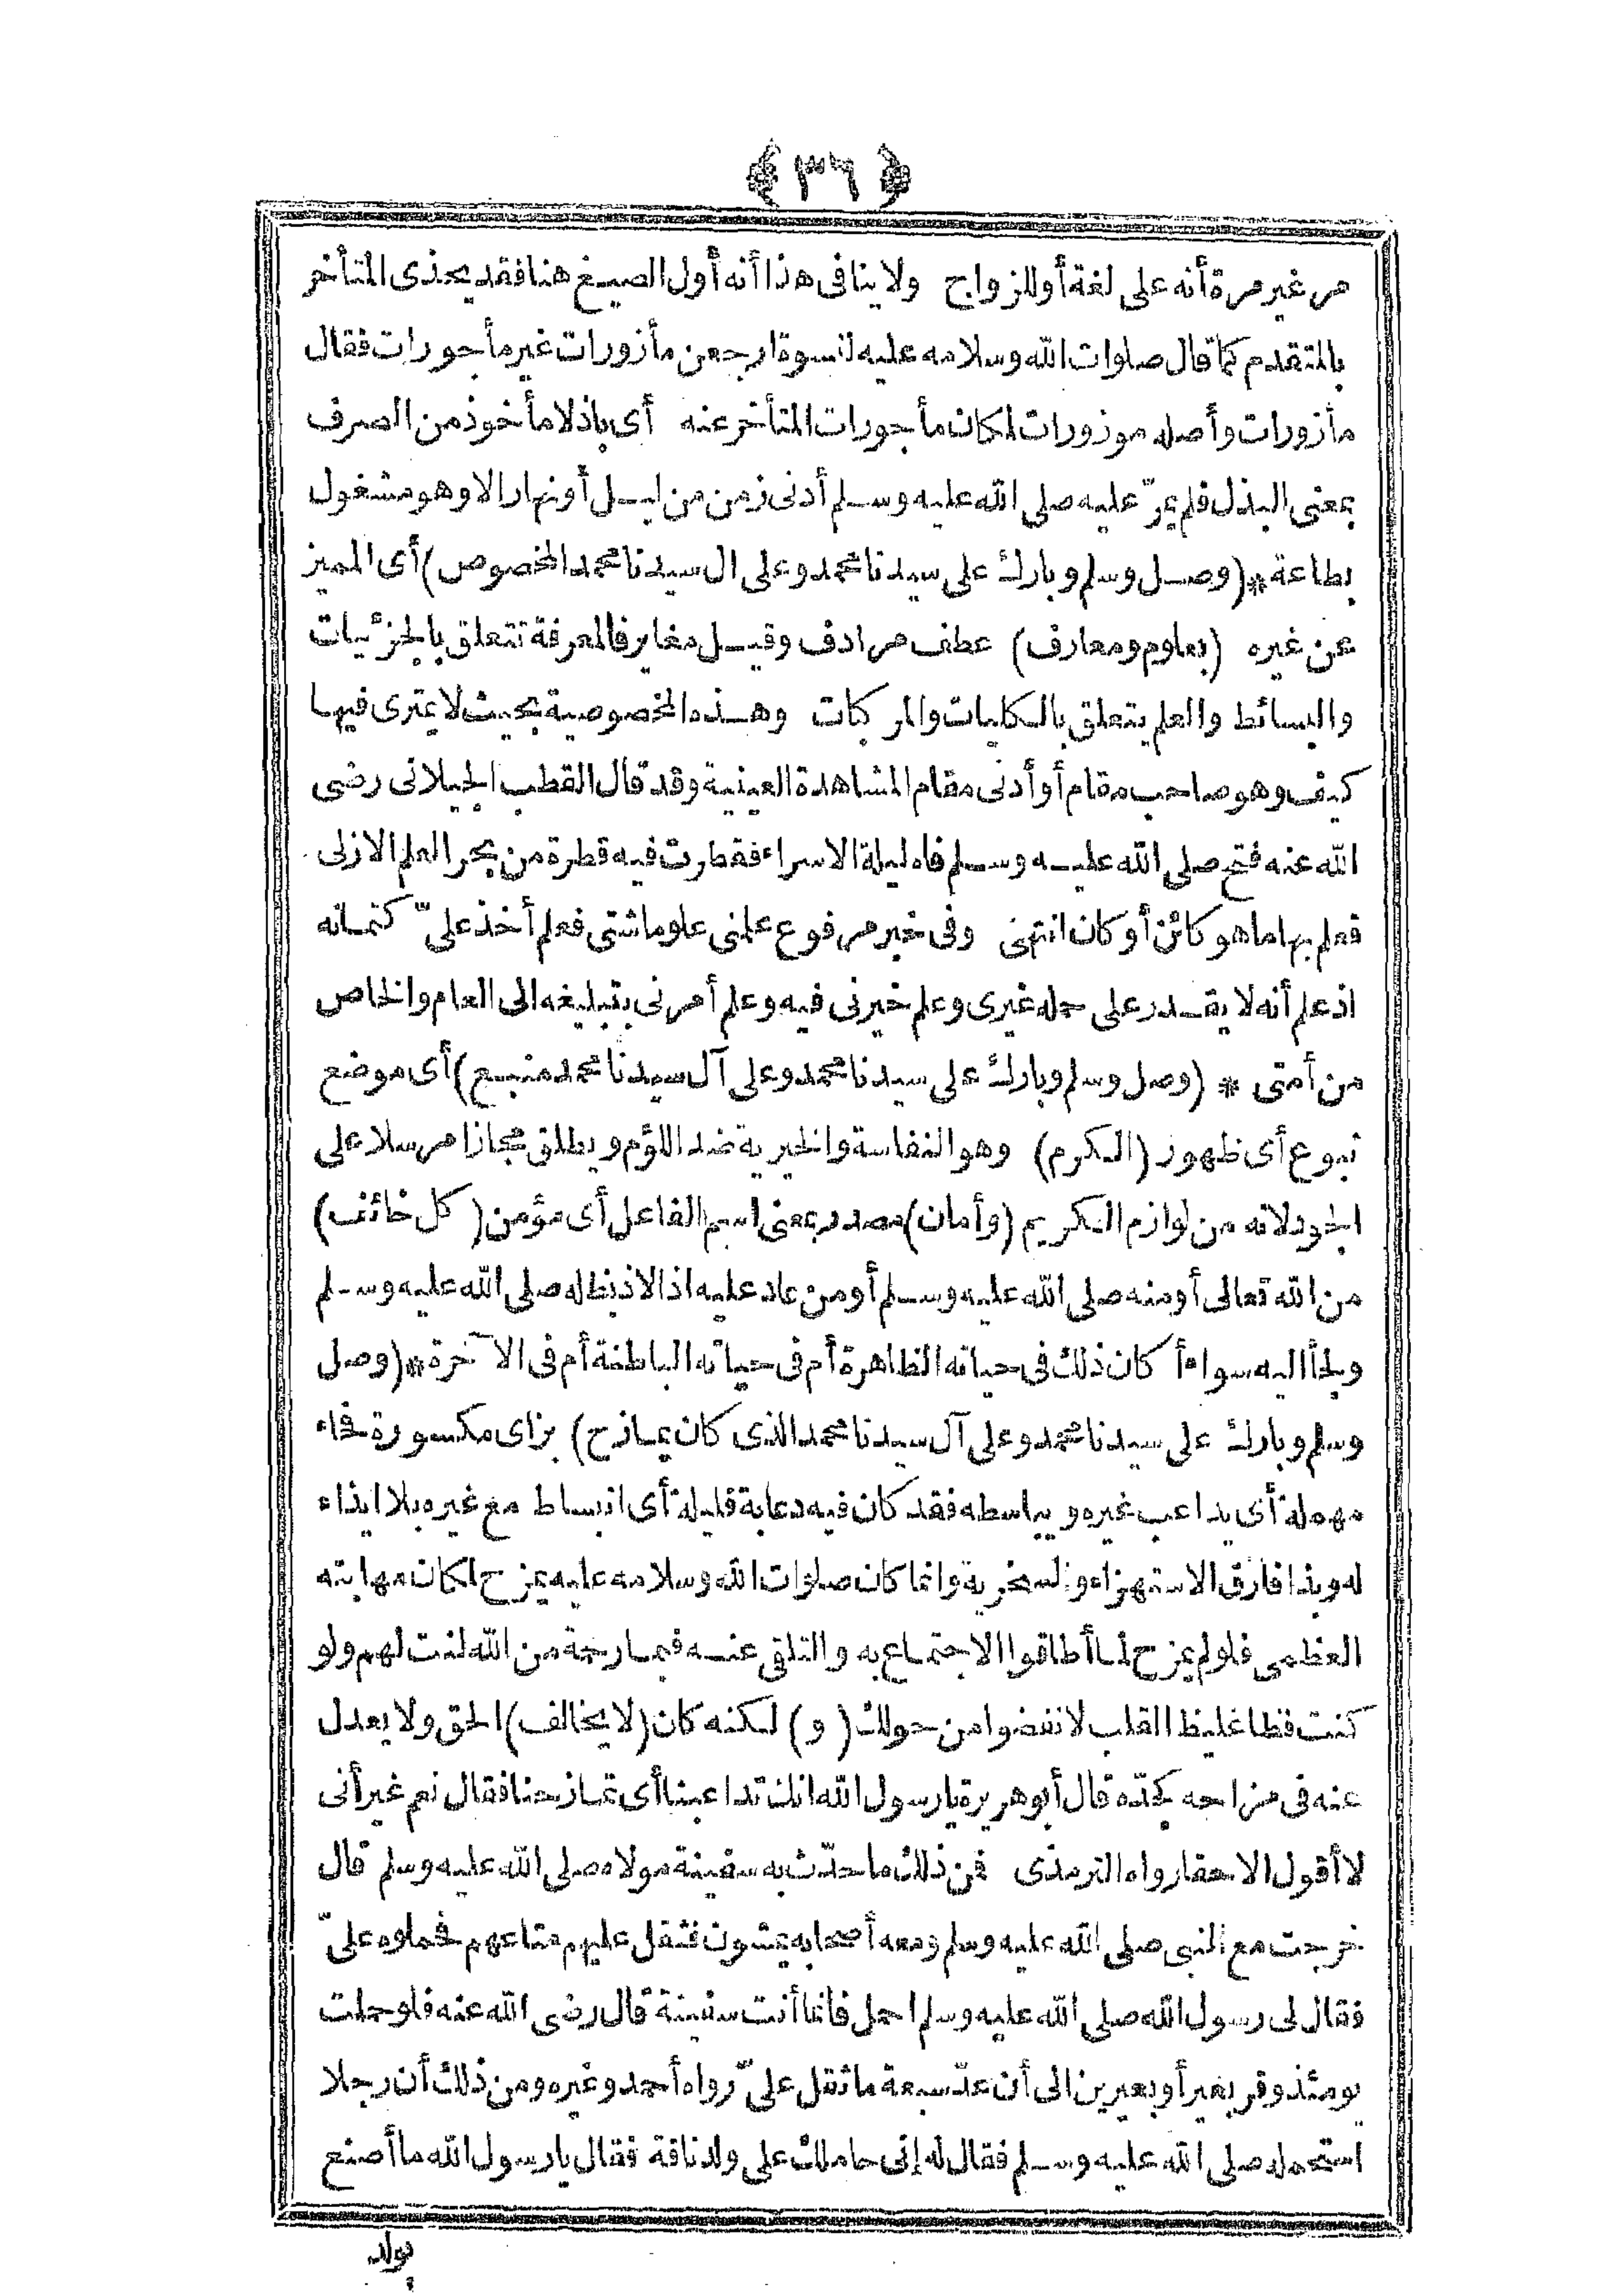 ﴿ ٣٦ ﴾
مر غير مرة أنه على لغة أو للزواج ولا ينافى هذا أنه أول الصيغ هنا فقد يحذى المتأخر
بالمتقدم كما قال صلوات الله وسلامه عليه لنسوة ارجعن مأزورات غير مأجورات فقال
مأزورات وأصله موزورات لمكان مأجورات المتأخر عنه أى باذلا مأخوذ من الصرف
بمعنى البذل فلم يمرّ عليه صلى الله عليه وسلم أدنى زمن من ليل أو نهار الا وهو مشغول
بطاعة *(وصل وسلم وبارك على سيدنا محمد وعلى ال سيدنا محمد المخصوص) أى المميز
عن غيره (بعلوم ومعارف) عطف مرادف وقيل مغاير فالمعرفة تتعلق بالجزئيات
والبسائط والعلم يتعلق بالكليات والمركبات وهذه الخصوصية بحيث لا يمترى فيها
كيف وهو صاحب مقام أو أدنى مقام المشاهدة العينية وقد قال القطب الجيلانى رضى
الله عنه فتح صلى الله عليه وسلم فاه ليلة الاسراء فقطرت فيه قطرة من بحر العلم الازلى
فعلم بها ما هو كائن أو كان انتهى وفى خبر مرفوع علمنى علوما شتى فعلم أخذ علىّ كتمانه
اذ علم أنه لا يقدر على حمله غيرى وعلم خيرنى فيه وعلم أمرنى بتبليغه الى العام والخاص
من أمتى * (وصل وسلم وبارك على سيدنا محمد وعلى آل سيدنا محمد منبع) أى موضع
نبوع أى ظهور (الكرم) وهو النفاسة والخيرية ضد اللؤم ويطلق مجازا مرسلا على
الجود لانه من لوازم الكريم (وأمان) مصدر بمعنى اسم الفاعل أى مؤمن (كل خائف)
من الله تعالى أو منه صلى الله عليه وسلم أو من عاد عليه اذا لاذ بظله صلى الله عليه وسلم
ولجأ اليه سواء أ كان ذلك فى حياته الظاهرة أم فى حياته الباطنة أم فى الآخرة *(وصل
وسلم وبارك على سيدنا محمد وعلى آل سيدنا محمد الذى كان يمازح) بزاى مكسورة فحاء
مهملة أى يداعب غيره ويباسطه فقد كان فيه دعابة قليلة أى انبساط مع غيره بلا ايذاء
له وبذا فارق الاستهزاء والسخرية وانما كان صلوات الله وسلامه عليه يمزح لمكان مهابته
العظمى فلو لم يمزح لما أطاقوا الاجتماع به والتلقى عنه فبما رحمة من الله لنت لهم ولو
كنت فظا غليظ القلب لانفضوا من حولك (و) لكنه كان (لا يخالف) الحق ولا يعدل
عنه فى مزاحه كجدّه قال أبو هريرة يا رسول الله انك تداعبنا أى تمازحنا فقال نعم غير أنى
لا أقول الا حقا رواه الترمذى فمن ذلك ما حدّث به سفينة مولاه صلى الله عليه وسلم قال
خرجت مع النبى صلى الله عليه وسلم ومعه أصحابه يمشون فثقل عليهم متاعهم فحملوه علىّ
فقال لى رسول الله صلى الله عليه وسلم احمل فانما أنت سفينة قال رضى الله عنه فلو حملت
يومئذ وقر بعير أو بعيرين الى أن عدّ سبعة ما ثقل علىّ رواه أحمد وغيره ومن ذلك أن رجلا
استحمله صلى الله عليه وسلم فقال له إنى حاملك على ولد ناقة فقال يا رسول الله ما أصنع
بولد